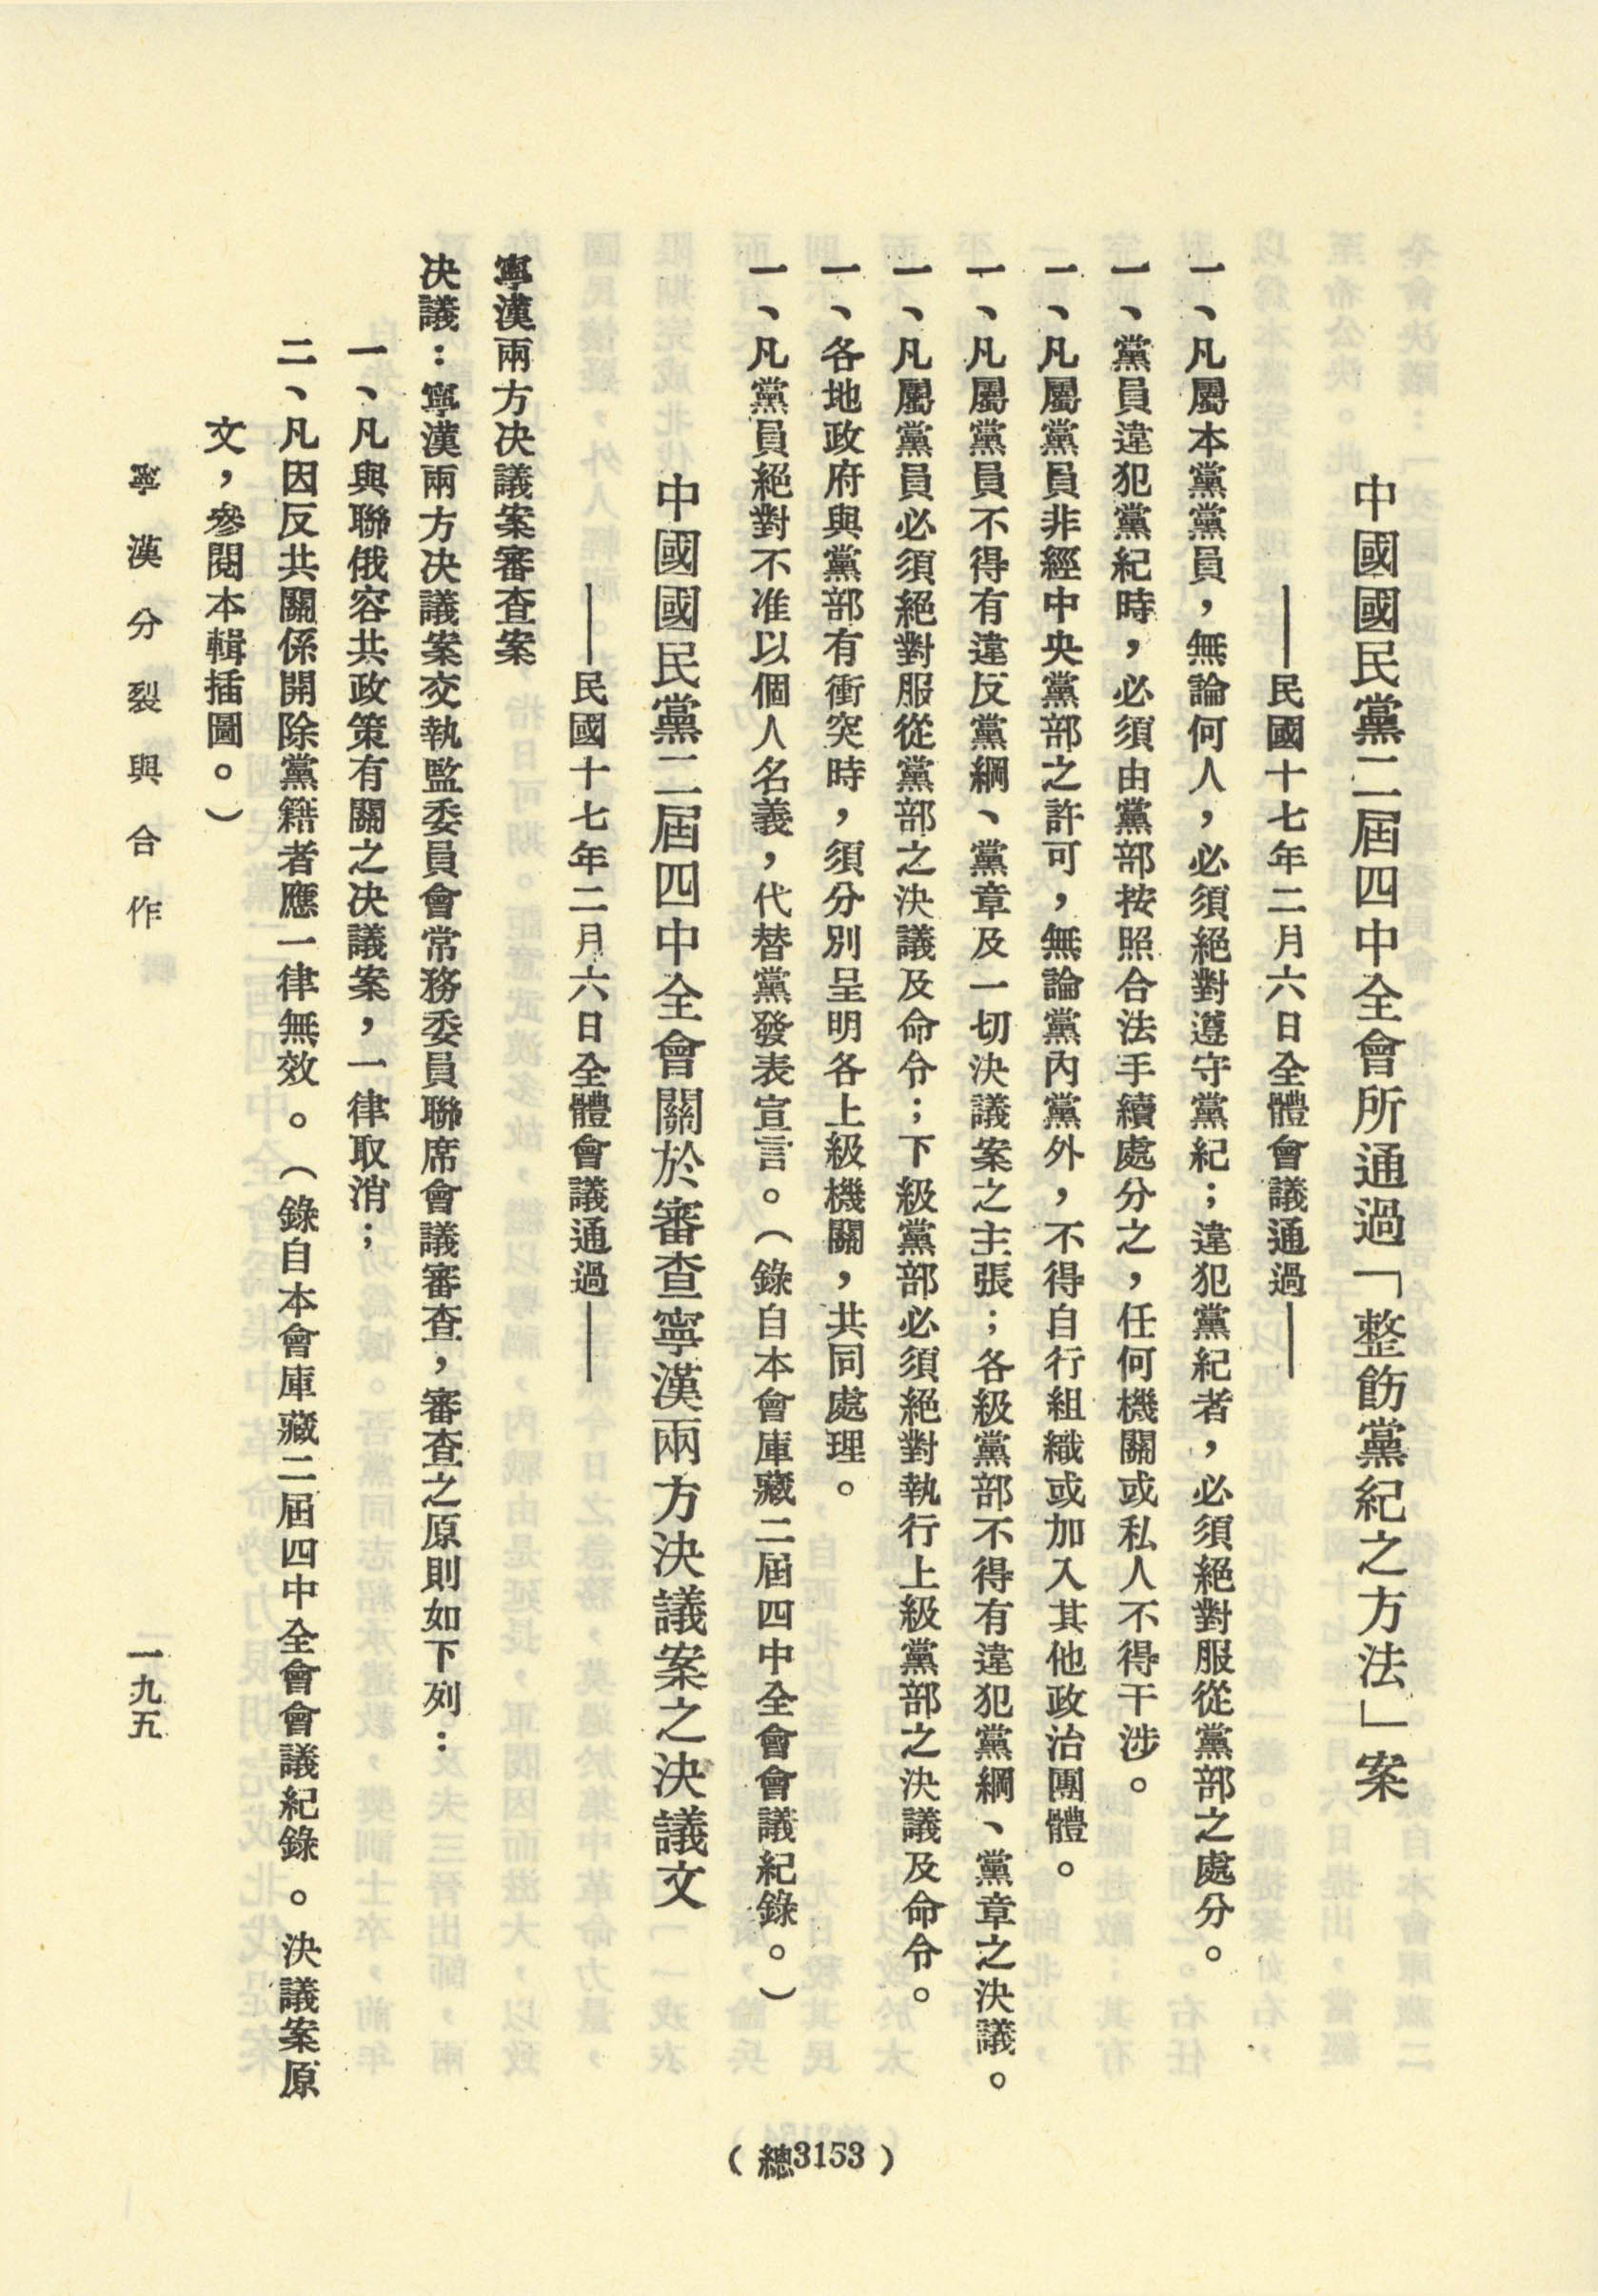 中國國民黨二屆四中全會所通過「整飭黨紀之方法」案
——民國十七年二月六日全體會議通過——
一、凡屬本黨黨員，無論何人，必須絕對遵守黨紀；違犯黨紀者，必須絕對服從黨部之處分。
一、黨員違犯黨紀時，必須由黨部按照合法手續處分之，任何機關或私人不得干涉。
一、凡屬黨員非經中央黨部之許可，無論黨內黨外，不得自行組織或加入其他政治團體。
一、凡屬黨員不得有違反黨綱、黨章及一切決議案之主張；各級黨部不得有違犯黨綱、黨章之決議。
一、凡屬黨員必須絕對服從黨部之決議及命令；下級黨部必須絕對執行上級黨部之決議及命令。
一、各地政府與黨部有衝突時，須分別呈明各上級機關，共同處理。
一、凡黨員絕對不准以個人名義，代替黨發表宣言。（錄自本會庫藏二屆四中全會會議紀錄。）
中國國民黨二屆四中全會關於審查寧漢兩方決議案之決議文
——民國十七年二月六日全體會議通過——
寧漢兩方決議案審查案
決議：寧漢兩方決議案交執監委員會常務委員聯席會議審查，審查之原則如下列：
一、凡與聯俄容共政策有關之決議案，一律取消；
二、凡因反共關係開除黨籍者應一律無效。（錄自本會庫藏二屆四中全會會議紀錄。決議案原
文，參閱本輯插圖。）
寧漢分裂與合作
一九五
（總3153）